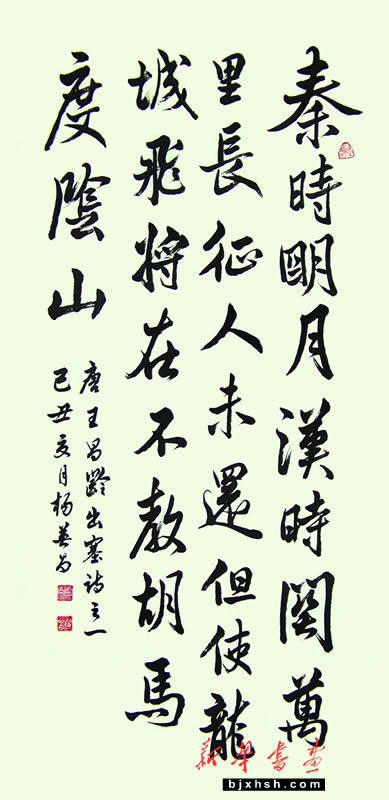 秦時明月漢時関萬
里長征人未還但使龍
城飛將在不教胡馬
度陰山
唐王昌齡出塞詩之一
己丑夏月楊英
書画
bjxhsh.com